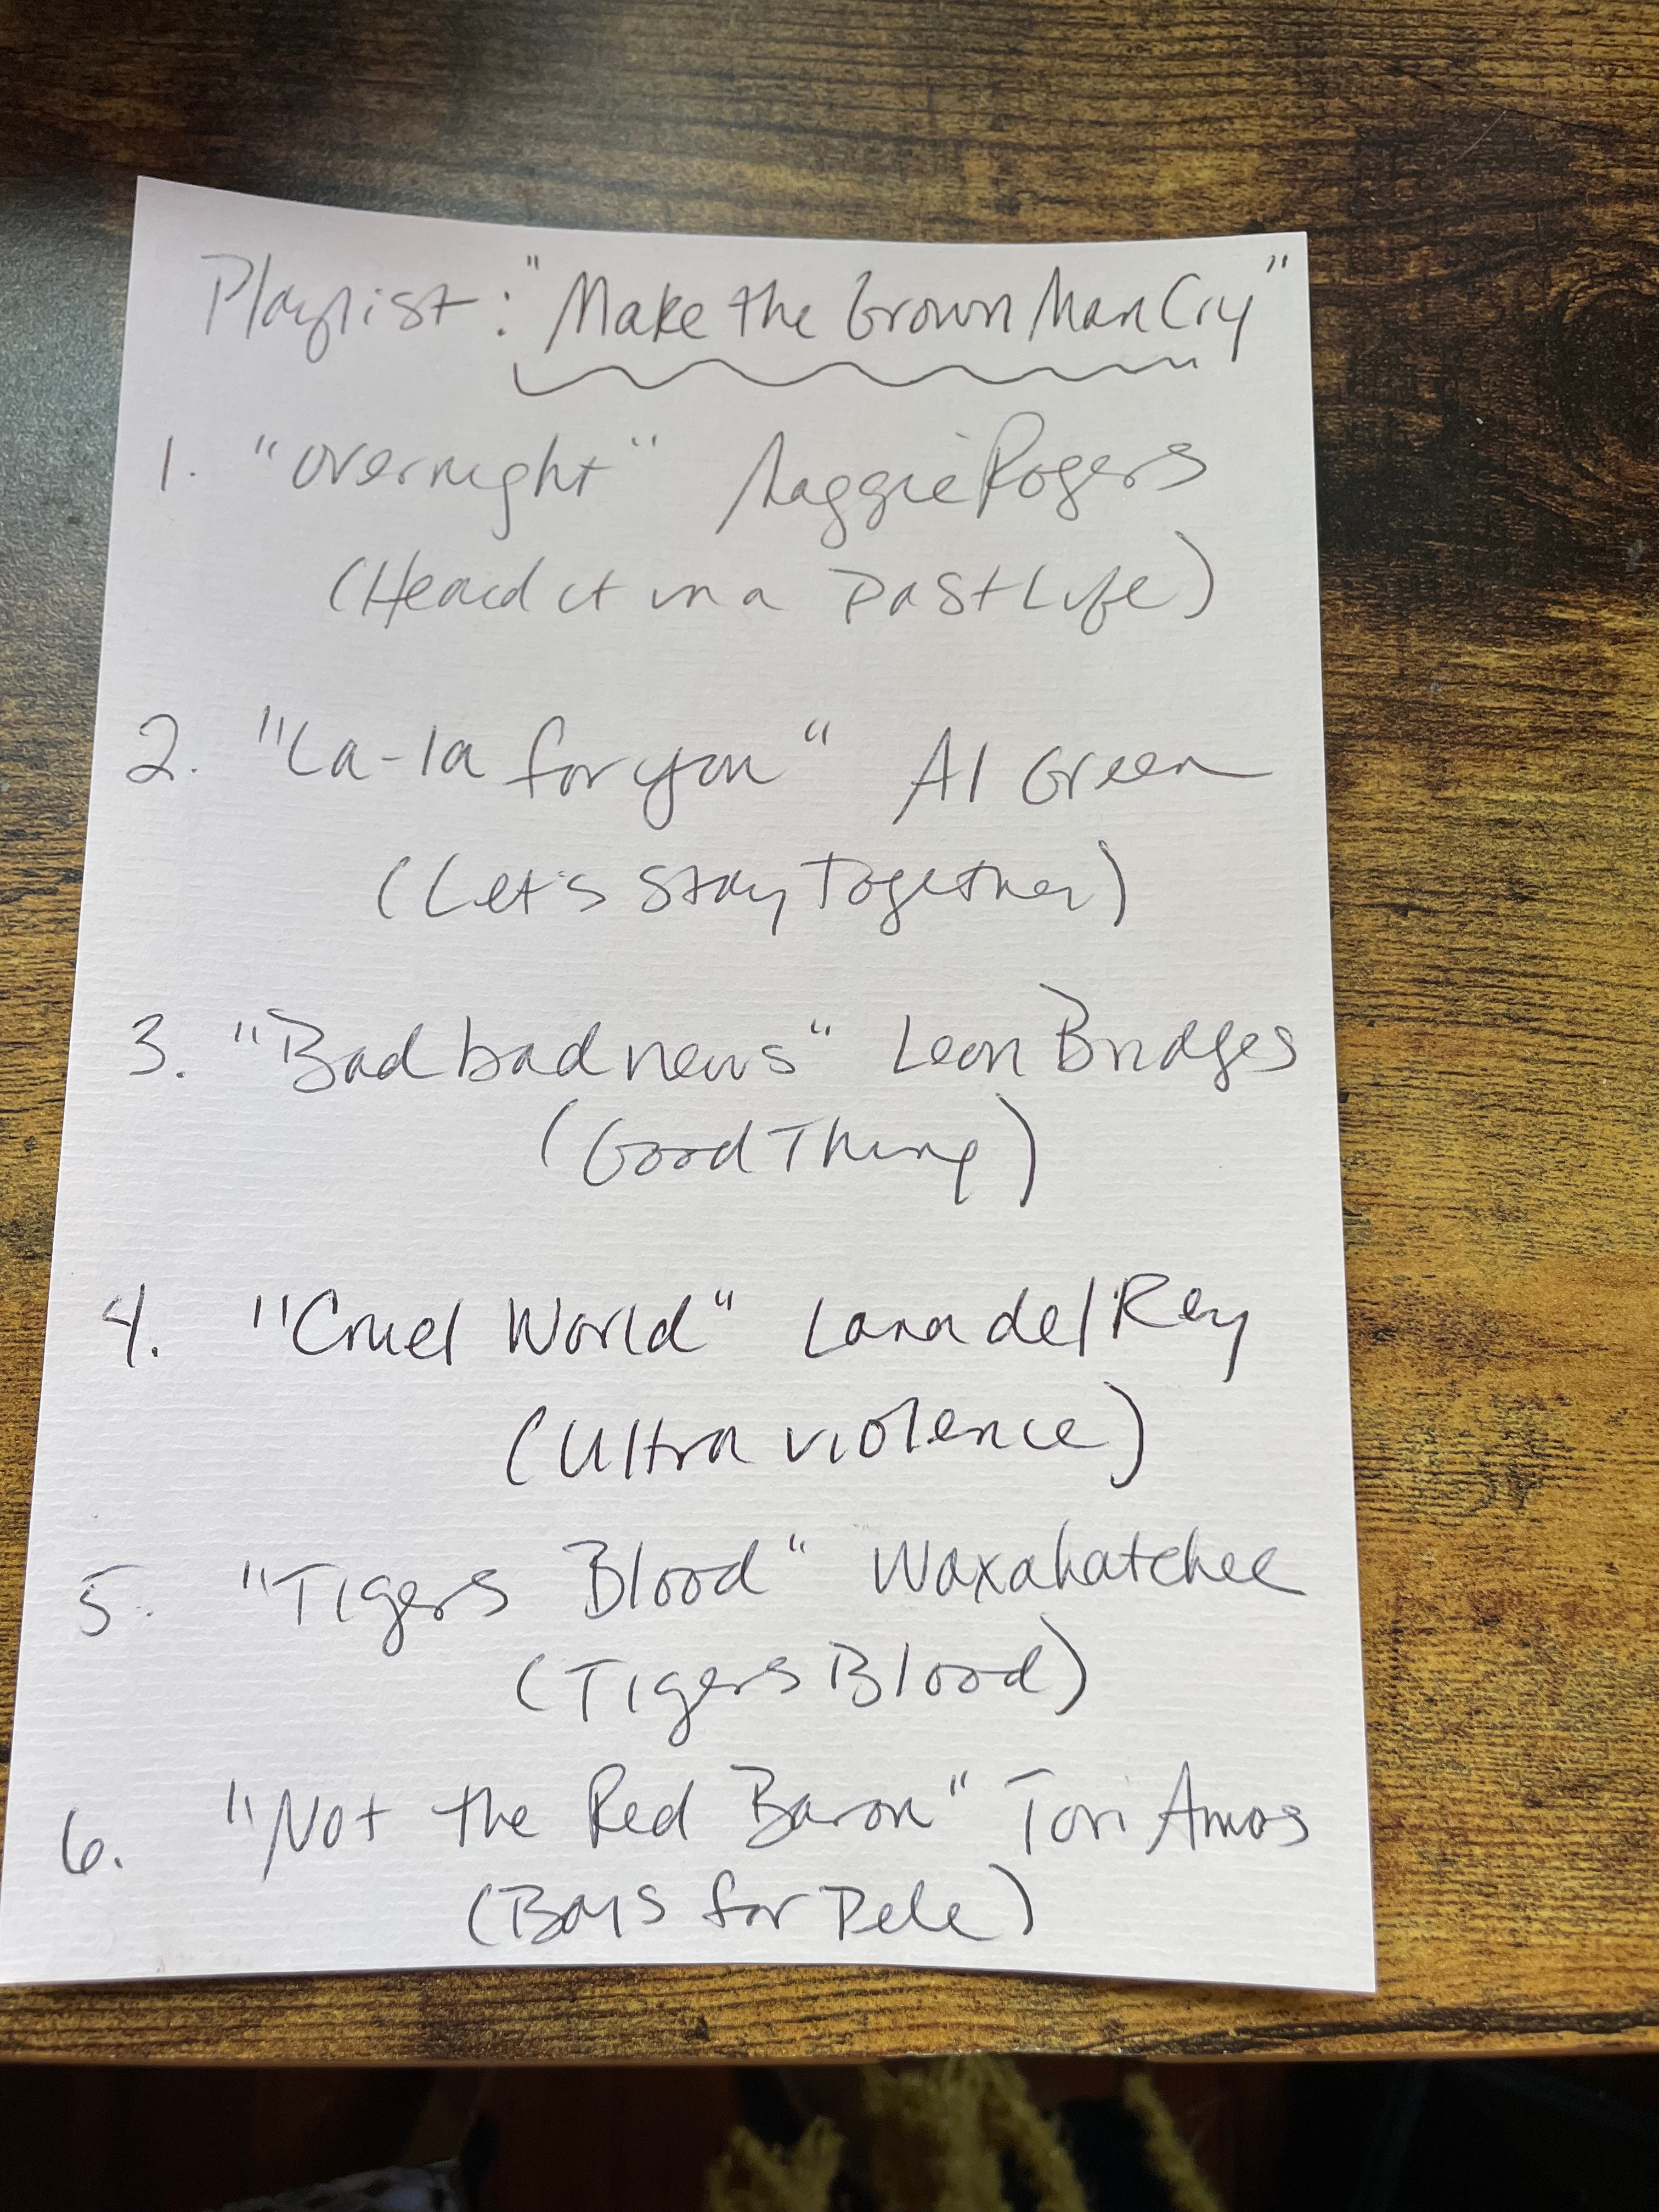 Playlist: "Make the Grown Man Cry"
1. "Overnight" Maggie Rogers
(Heard it in a Past Life)
2. "La-la for you" Al Green
(Let's Stay Together)
3. "Bad bad news" Leon Bridges
(Good Thing)
4. "Cruel World" Lana del Rey
(Ultra violence)
5. "Tigers Blood" Waxahatchee
(Tigers Blood)
6. "Not the Red Baron" Tori Amos
(Boys for Pele)